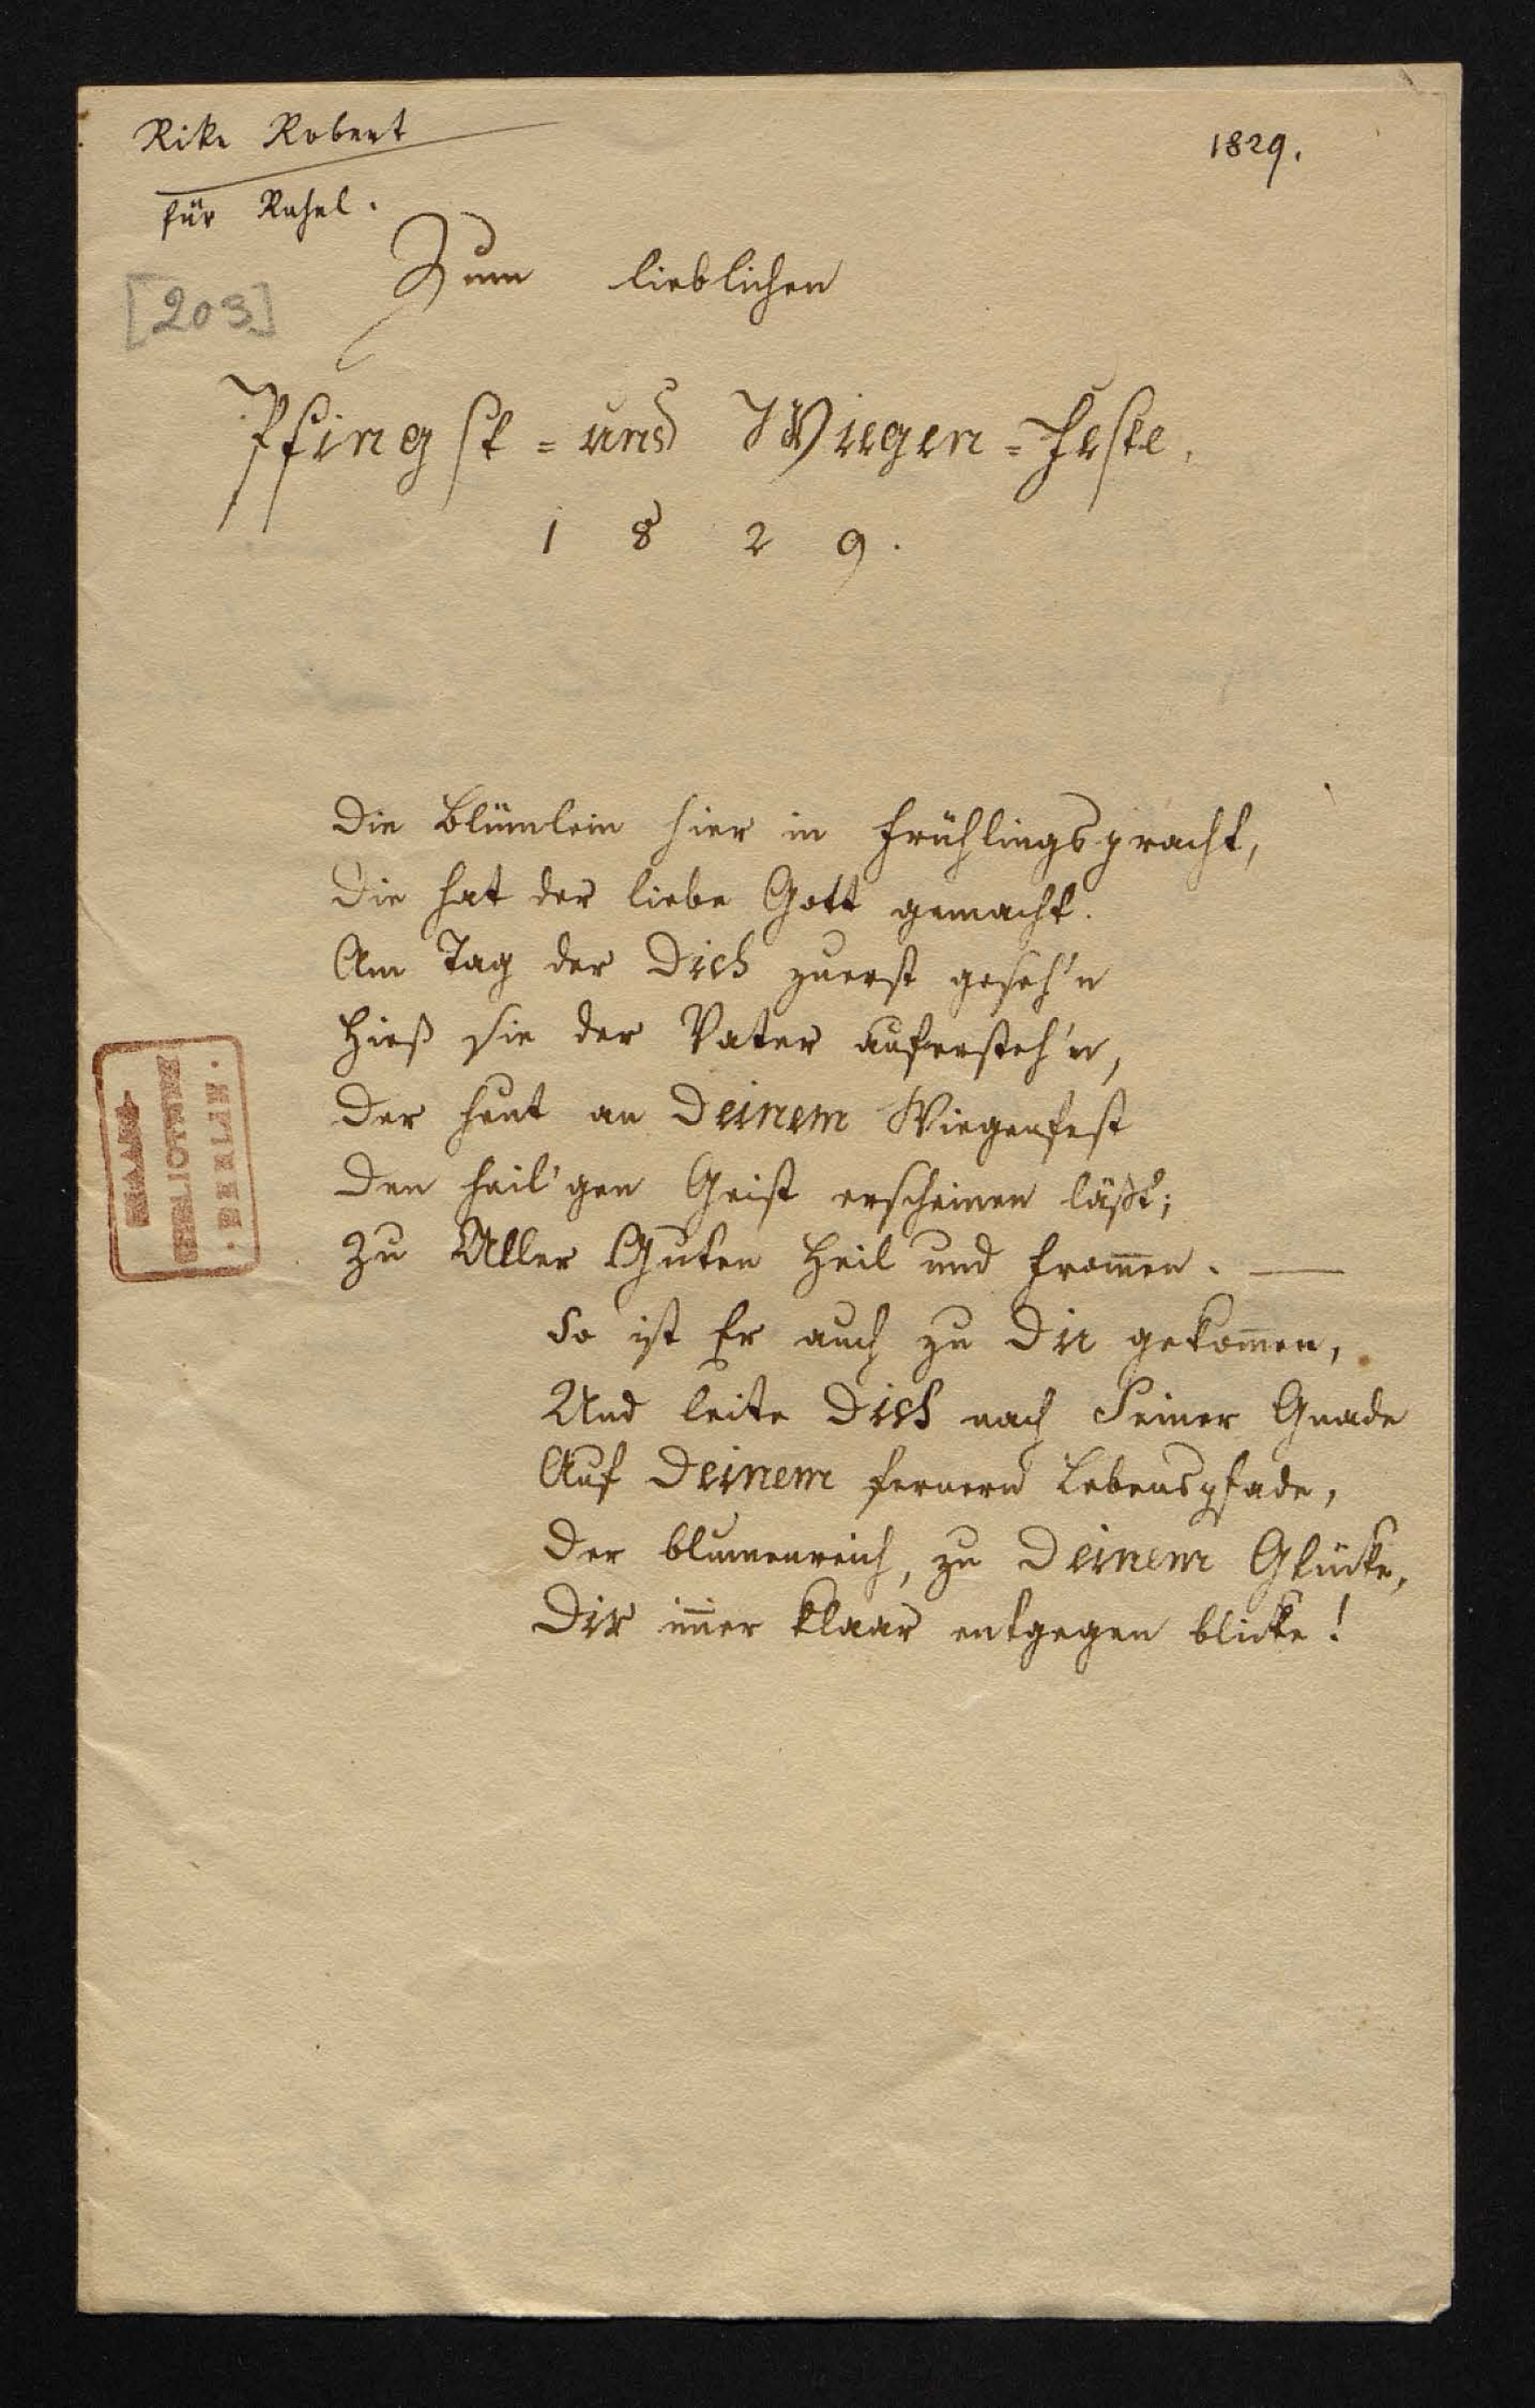 Rike Robert
1829.
für Rahel.
[203]
Zum lieblichen
Pfingst= und Wiegen=Feste,
1829.
Die Blümlein hier in Frühlingspracht,
Die hat der liebe Gott gemacht.
Am Tag der Dich zuerst geseh'n
Hieß sie der Vater aufersteh'n,
Der heut an Deinem Wiegenfest
Den heil'gen Geist erscheinen läßt;
Zu Aller Guten Heil und From̅en. —
So ist Er auch zu Dir gekom̅en,
Und leite Dich nach Seiner Gnade
Auf Deinem fernern Lebenspfade,
Der blumenreich, zu Deinem Glücke,
Dir im̅er klaar entgegen blicke!
STAATS-
BIBLIOTHEK
· BERLIN ·